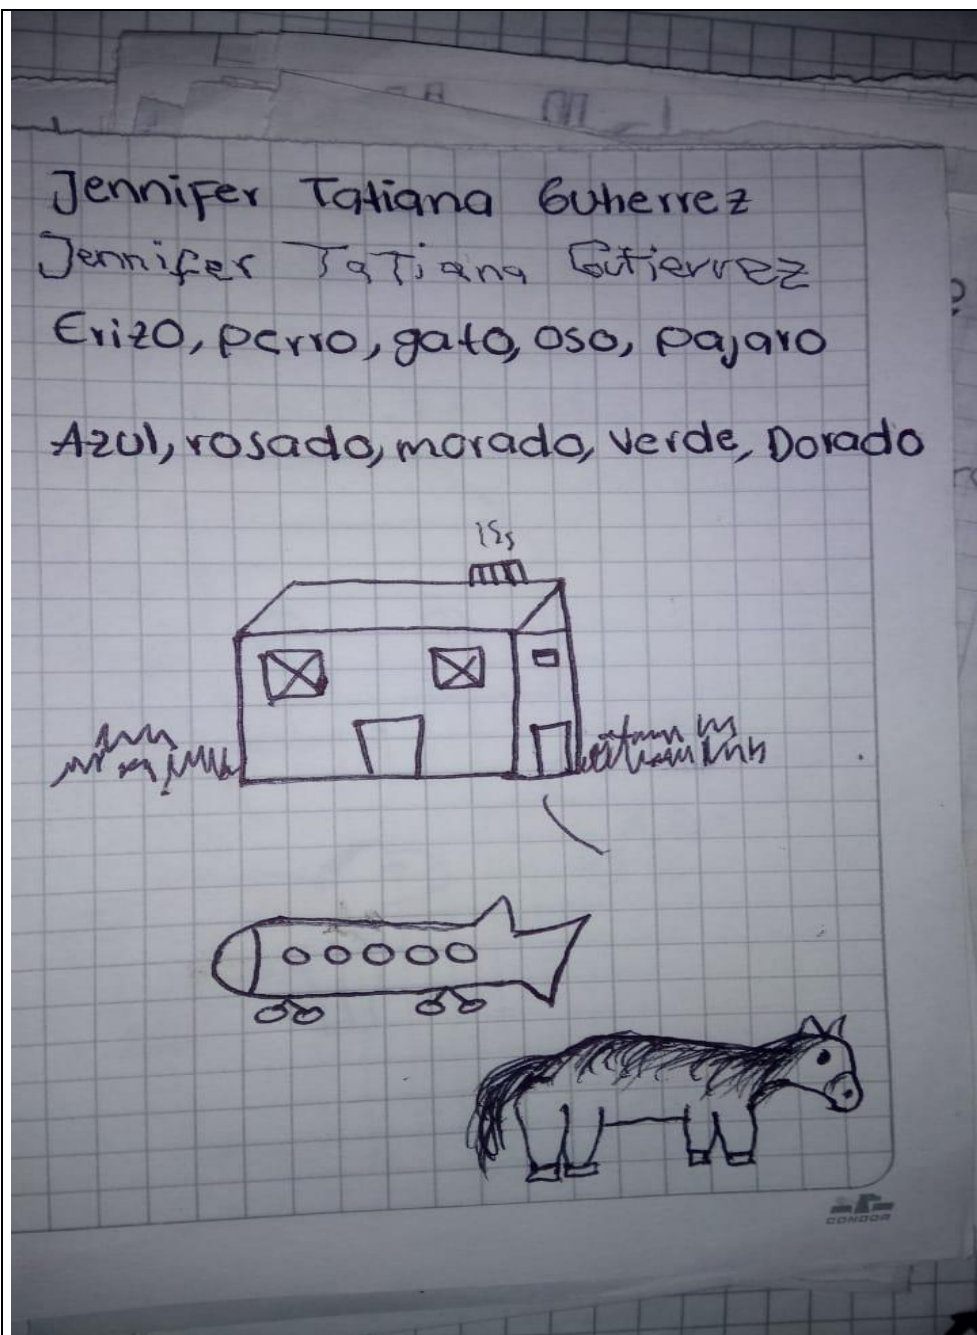 Jennifer Tatiana Gutierrez
Jennifer TaTiana Gutierrez
Erizo, perro, gato, oso, pajaro
Azul, rosado, morado, verde, Dorado
CONDOR